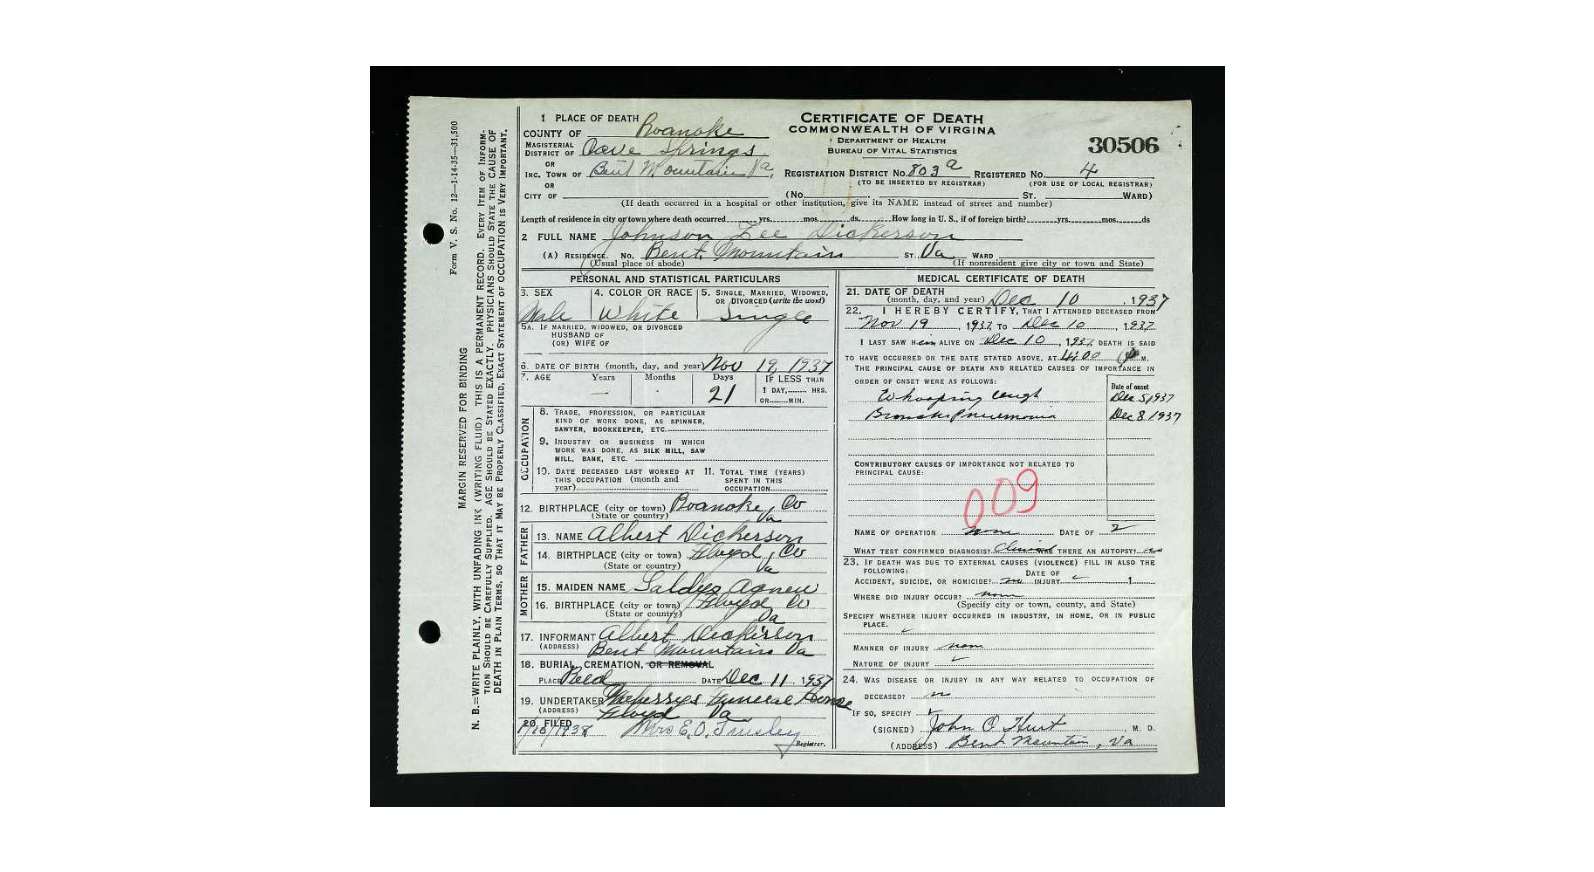 1 PLACE OF DEATH
COUNTY OF Roanoke
MAGISTERIAL DISTRICT OF Cave Springs
OR
INC. TOWN OF Bent Mountain Va,
OR
CITY OF
CERTIFICATE OF DEATH
COMMONWEALTH OF VIRGINIA
DEPARTMENT OF HEALTH
BUREAU OF VITAL STATISTICS
30506
REGISTRATION DISTRICT NO. 803 a REGISTERED NO. 4
(TO BE INSERTED BY REGISTRAR) (FOR USE OF LOCAL REGISTRAR)
(No. ST. WARD)
(If death occurred in a hospital or other institution, give its NAME instead of street and number)
Length of residence in city or town where death occurred yrs. mos. ds. How long in U. S., if of foreign birth? yrs. mos. ds
2 FULL NAME Johnson Lee Dickerson
(A) RESIDENCE. No. Bent Mountain ST. Va WARD
(Usual place of abode) (If nonresident give city or town and State)
PERSONAL AND STATISTICAL PARTICULARS
3. SEX 4. COLOR OR RACE 5. SINGLE, MARRIED, WIDOWED, OR DIVORCED (write the word)
Male White Single
5A. IF MARRIED, WIDOWED, OR DIVORCED
HUSBAND OF
(OR) WIFE OF
6. DATE OF BIRTH (month, day, and year) Nov 19, 1937
7. AGE Years Months Days IF LESS THAN
— - 21 1 DAY, HRS.
OR MIN.
OCCUPATION
8. TRADE, PROFESSION, OR PARTICULAR
KIND OF WORK DONE, AS SPINNER,
SAWYER, BOOKKEEPER, ETC.
9. INDUSTRY OR BUSINESS IN WHICH
WORK WAS DONE, AS SILK MILL, SAW
MILL, BANK, ETC.
10. DATE DECEASED LAST WORKED AT 11. TOTAL TIME (YEARS)
THIS OCCUPATION (month and SPENT IN THIS
year) OCCUPATION
12. BIRTHPLACE (city or town) Roanoke, Co
(State or country) Va
FATHER
13. NAME Albert Dickerson
14. BIRTHPLACE (city or town) Floyd, Co
(State or country) Va
MOTHER
15. MAIDEN NAME Agnew
16. BIRTHPLACE (city or town) Floyd, Co
(State or country) Va
17. INFORMANT Albert Dickerson
(ADDRESS) Bent Mountain Va
18. BURIAL, CREMATION, OR REMOVAL
PLACE Reed DATE Dec 11, 1937
19. UNDERTAKER Funeral Home
(ADDRESS) Floyd Va
20. FILED 1/10/1938 Mrs E. O. Tinsley
Registrar.
MEDICAL CERTIFICATE OF DEATH
21. DATE OF DEATH
(month, day, and year) Dec 10, 1937
22. I HEREBY CERTIFY, THAT I ATTENDED DECEASED FROM
Nov 19, 1937, TO Dec 10, 1937
I LAST SAW Him ALIVE ON Dec 10, 1937 DEATH IS SAID
TO HAVE OCCURRED ON THE DATE STATED ABOVE, AT 4:00 P M.
THE PRINCIPAL CAUSE OF DEATH AND RELATED CAUSES OF IMPORTANCE IN
ORDER OF ONSET WERE AS FOLLOWS:
Date of onset
Whooping cough Dec 5, 1937
Broncho Pneumonia Dec 8, 1937
CONTRIBUTORY CAUSES OF IMPORTANCE NOT RELATED TO
PRINCIPAL CAUSE:
009
NAME OF OPERATION none DATE OF
WHAT TEST CONFIRMED DIAGNOSIS? Clinical WAS THERE AN AUTOPSY? no
23. IF DEATH WAS DUE TO EXTERNAL CAUSES (VIOLENCE) FILL IN ALSO THE
FOLLOWING: DATE OF
ACCIDENT, SUICIDE, OR HOMICIDE? no INJURY 1
WHERE DID INJURY OCCUR? none
(Specify city or town, county, and State)
SPECIFY WHETHER INJURY OCCURRED IN INDUSTRY, IN HOME, OR IN PUBLIC
PLACE.
MANNER OF INJURY none
NATURE OF INJURY
24. WAS DISEASE OR INJURY IN ANY WAY RELATED TO OCCUPATION OF
DECEASED? no
IF SO, SPECIFY
(SIGNED) John O Hurt M. D.
(ADDRESS) Bent Mountain, Va
Form V. S. No. 12—1-14-35—31,500
MARGIN RESERVED FOR BINDING
N. B.—WRITE PLAINLY, WITH UNFADING INK (WRITING FLUID) THIS IS A PERMANENT RECORD. EVERY ITEM OF INFORMA-
TION SHOULD BE CAREFULLY SUPPLIED. AGE SHOULD BE STATED EXACTLY. PHYSICIANS SHOULD STATE THE CAUSE OF
DEATH IN PLAIN TERMS, SO THAT IT MAY BE PROPERLY CLASSIFIED. EXACT STATEMENT OF OCCUPATION IS VERY IMPORTANT.